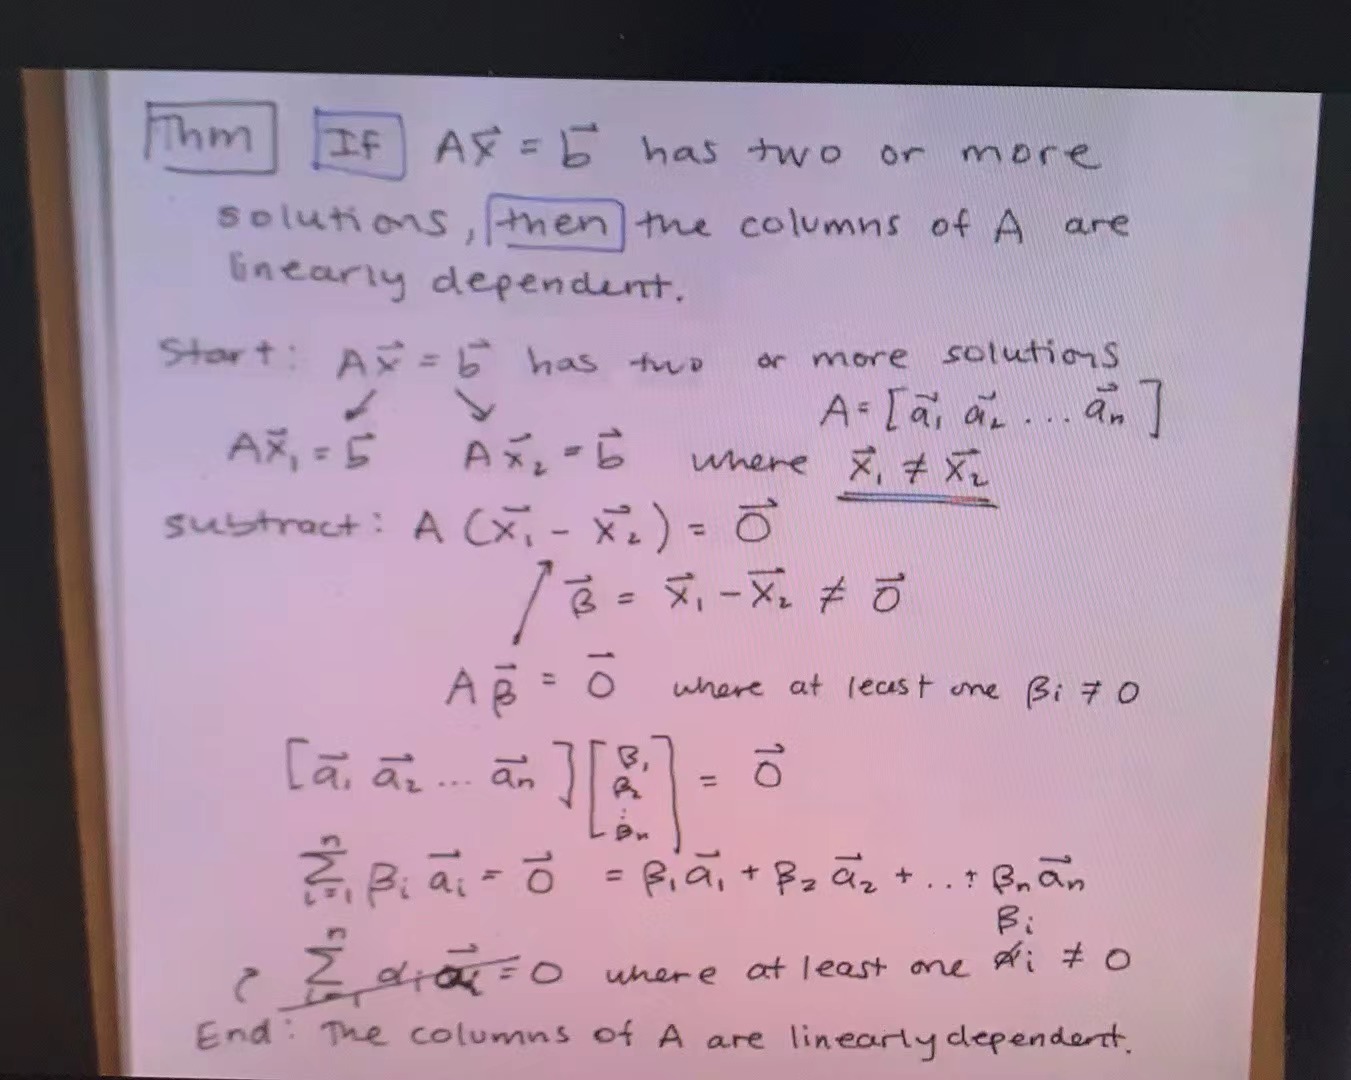 Thm If Ax⃗ = b⃗ has two or more
solutions, then the columns of A are
linearly dependent.
Start: Ax⃗ = b⃗ has two or more solutions
A = [a⃗₁ a⃗₂ ... a⃗ₙ]
Ax⃗₁ = b⃗ Ax⃗₂ = b⃗ where x⃗₁ ≠ x⃗₂
subtract: A (x⃗₁ - x⃗₂) = 0⃗
β⃗ = x⃗₁ - x⃗₂ ≠ 0⃗
Aβ⃗ = 0⃗ where at least one βᵢ ≠ 0
[a⃗₁ a⃗₂ ... a⃗ₙ] [β₁ β₂ ⋮ βₙ] = 0⃗
∑ⁿᵢ₌₁ βᵢ a⃗ᵢ = 0⃗ = β₁a⃗₁ + β₂a⃗₂ + ... + βₙa⃗ₙ
βᵢ
∑ⁿᵢ₌₁ αᵢa⃗ᵢ = 0 where at least one αᵢ ≠ 0
End: The columns of A are linearly dependent.